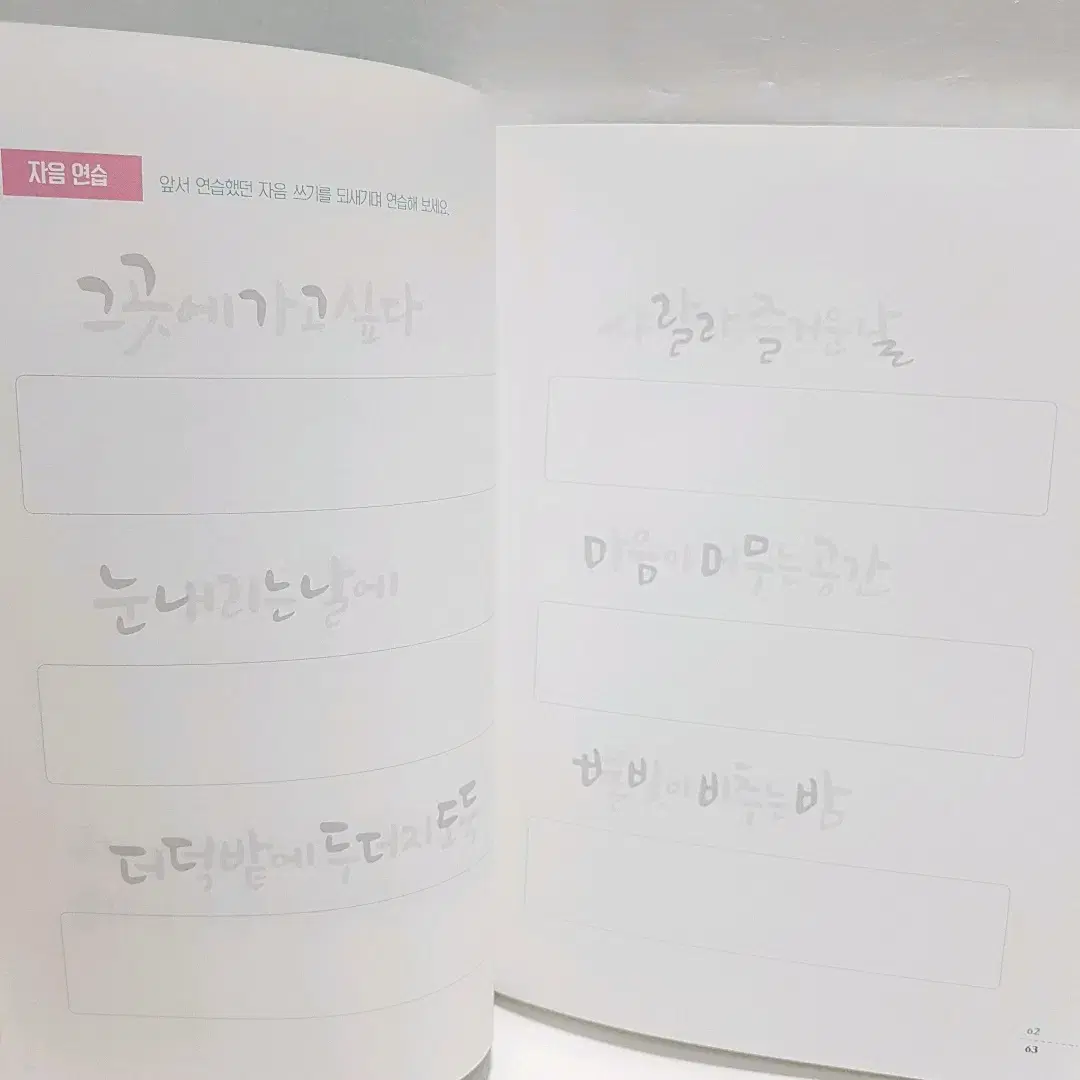 자음 연습
앞서 연습했던 자음 쓰기를 되새기며 연습해 보세요.
그곳에 가고 싶다
눈 내리는 날에
더덕밭에 두더지 도둑
즐거운 날
마음이 머무는 공간
별빛이 비추는 밤
62
63